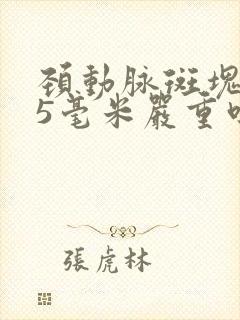 頚動脉斑塊
5毫米嚴重
張虎林